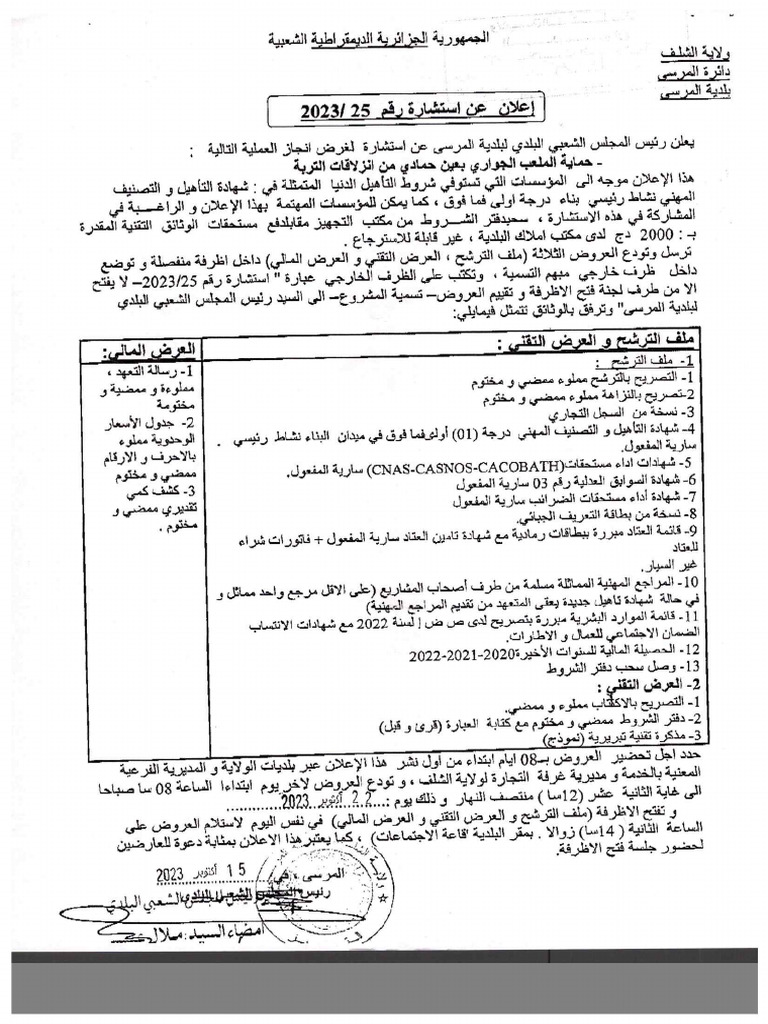 الجمهورية الجزائرية الديمقراطية الشعبية
ولاية الشلف
دائرة المرسى
بلدية المرسى
إعلان عن استشارة رقم 25 /2023
يعلن رئيس المجلس الشعبي البلدي لبلدية المرسى عن استشارة لغرض انجاز العملية التالية :
- حماية الملعب الجواري بعين حمادي من انزلاقات التربة
هذا الإعلان موجه الى المؤسسات التي تستوفي شروط التأهيل الدنيا المتمثلة في : شهادة التأهيل و التصنيف
المهني نشاط رئيسي بناء درجة اولى فما فوق ، كما يمكن للمؤسسات المهتمة بهذا الإعلان و الراغبة في
المشاركة في هذه الاستشارة ، سحبدفتر الشروط من مكتب التجهيز مقابلدفع مستحقات الوثائق التقنية المقدرة
بـ : 2000 دج لدى مكتب املاك البلدية ، غير قابلة للاسترجاع .
ترسل وتودع العروض الثلاثة (ملف الترشح ، العرض التقني و العرض المالي) داخل اظرفة منفصلة و توضع
داخل ظرف خارجي مبهم التسمية ، وتكتب على الظرف الخارجي عبارة " استشارة رقم 2023/25– لا يفتح
الا من طرف لجنة فتح الاظرفة و تقييم العروض– تسمية المشروع– الى السيد رئيس المجلس الشعبي البلدي
لبلدية المرسى" وترفق بالوثائق تتمثل فيمايلي:
ملف الترشح و العرض التقني :
1- ملف الترشح :
1- التصريح بالترشح مملوء ممضي و مختوم
2-تصريح بالنزاهة مملوء ممضي و مختوم
3- نسخة من السجل التجاري
4- شهادة التأهيل و التصنيف المهني درجة (01) أولى فما فوق في ميدان البناء نشاط رئيسي .
سارية المفعول.
5- شهادات اداء مستحقات(CNAS-CASNOS-CACOBATH) سارية المفعول.
6- شهادة السوابق العدلية رقم 03 سارية المفعول
7- شهادة أداء مستحقات الضرائب سارية المفعول
8- نسخة من بطاقة التعريف الجبائي.
9- قائمة العتاد مبررة ببطاقات رمادية مع شهادة تامين العتاد سارية المفعول + فاتورات شراء
للعتاد
غير السيار.
10- المراجع المهنية المماثلة مسلمة من طرف أصحاب المشاريع (على الاقل مرجع واحد مماثل و
في حالة شهادة تاهيل جديدة يعفى المتعهد من تقديم المراجع المهنية)
11- قائمة الموارد البشرية مبررة بتصريح لدى ص ض إ لسنة 2022 مع شهادات الانتساب
الضمان الاجتماعي للعمال و الاطارات.
12- الحصيلة المالية للسنوات الأخيرة2020-2021-2022
13- وصل سحب دفتر الشروط
2- العرض التقني :
1- التصريح بالاكتتاب مملوء و ممضي.
2- دفتر الشروط ممضي و مختوم مع كتابة العبارة (قرئ و قبل)
3- مذكرة تقنية تبريرية (نموذج)
العرض المالي:
1- رسالة التعهد ،
مملوءة و ممضية و
مختومة
2- جدول الأسعار
الوحدوية مملوء
بالاحرف و الارقام
ممضي و مختوم
3- كشف كمي
تقديري ممضي و
مختوم .
حدد اجل تحضير العروض بـ08 ايام ابتداء من أول نشر هذا الإعلان عبر بلديات الولاية و المديرية الفرعية
المعنية بالخدمة و مديرية غرفة التجارة لولاية الشلف ، و تودع العروض لاخر يوم ابتداءا الساعة 08 سا صباحا
الى غاية الثانية عشر (12سا ) منتصف النهار و ذلك يوم : 22 أكتوبر 2023
و تفتح الاظرفة (ملف الترشح و العرض التقني و العرض المالي) في نفس اليوم لاستلام العروض على
الساعة الثانية (14سا) زوالا . بمقر البلدية "قاعة الاجتماعات) ، كما يعتبر هذا الاعلان بمثابة دعوة للعارضين
لحضور جلسة فتح الاظرفة.
المرسى ، في 15 أكتوبر 2023
رئيس المجلس الشعبي البلدي
رئيس المجلس الشعبي البلدي
امضاء السيد: ملال